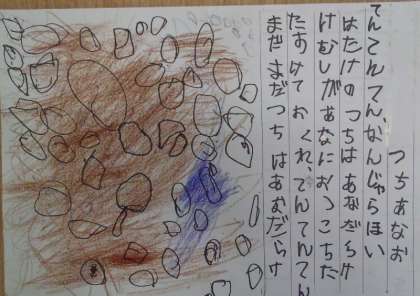 つちあなお
てんてんてん、なんじゃらほい
はたけのつちはあなだらけ
けむしがあなにおっこちた
たすけておくれ、てんてんてん
まだまだつちはあなだらけ